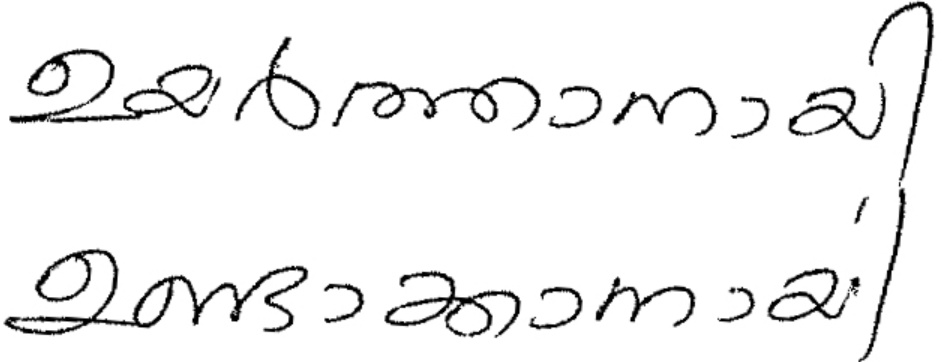 ഉയർത്താനായി
ഉണ്ടാക്കാനായി